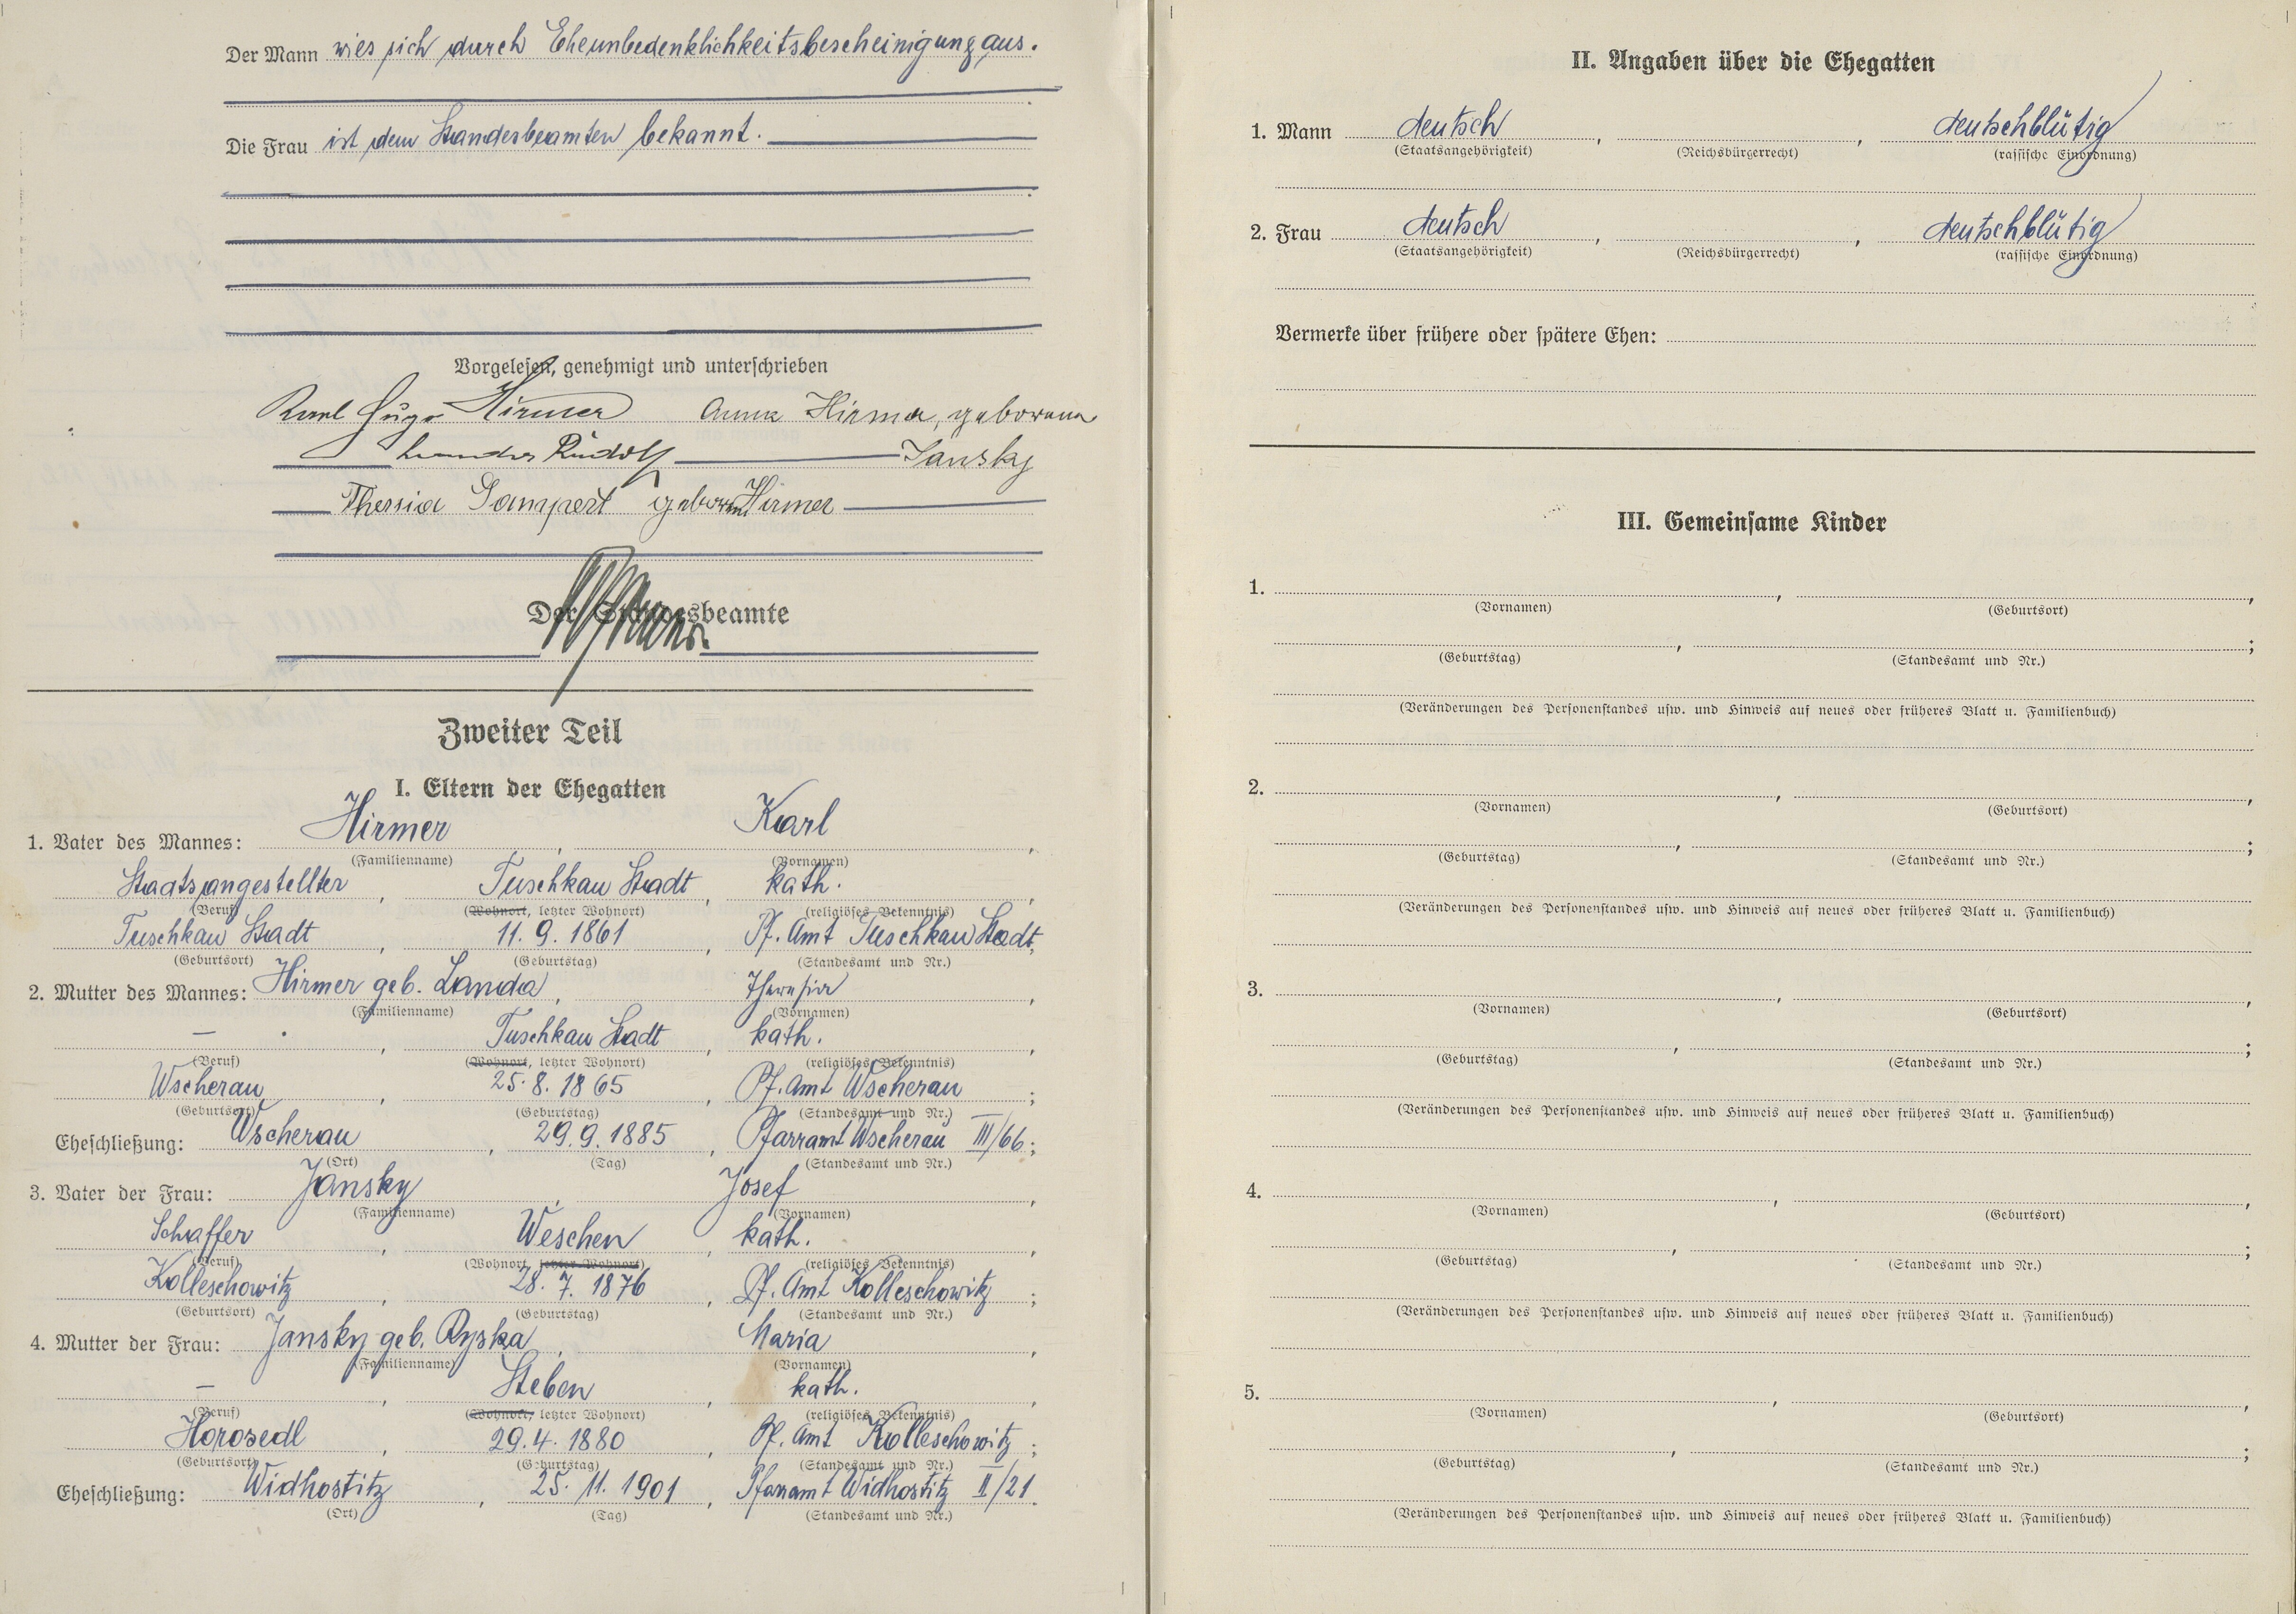 Der Mann wies sich durch Eheunbedenklichkeitsbescheinigung aus.
Die Frau ist dem Standesbeamten bekannt.
Vorgelesen, genehmigt und unterschrieben
Karl Hugo Hirmer Anna Hirmer, geborene
Rudolf Jansky
Theresia Lampert geborene Hirmer
Der Standesbeamte
Zweiter Teil
I. Eltern der Ehegatten
1. Vater des Mannes: Hirmer, Karl,
(Familienname) (Vornamen)
Staatsangestellter, Tuschkau Stadt, kath.,
(Beruf) (Wohnort, letzter Wohnort) (religiöses Bekenntnis)
Tuschkau Stadt, 11.9.1861, Pf. Amt Tuschkau Stadt,
(Geburtsort) (Geburtstag) (Standesamt und Nr.)
2. Mutter des Mannes: Hirmer geb. Landa, Theresia,
(Familienname) (Vornamen)
—, Tuschkau Stadt, kath.,
(Beruf) (Wohnort, letzter Wohnort) (religiöses Bekenntnis)
Wscherau, 25.8.1865, Pf. Amt Wscherau;
(Geburtsort) (Geburtstag) (Standesamt und Nr.)
Eheschließung: Wscherau, 29.9.1885, Pfarramt Wscherau III/66;
(Ort) (Tag) (Standesamt und Nr.)
3. Vater der Frau: Jansky, Josef,
(Familienname) (Vornamen)
Schaffer, Weschen, kath.,
(Beruf) (Wohnort, letzter Wohnort) (religiöses Bekenntnis)
Kolleschowitz, 28.7.1876, Pf. Amt Kolleschowitz;
(Geburtsort) (Geburtstag) (Standesamt und Nr.)
4. Mutter der Frau: Jansky geb. Ryska, Maria,
(Familienname) (Vornamen)
—, Steben, kath.,
(Beruf) (Wohnort, letzter Wohnort) (religiöses Bekenntnis)
Horosedl, 29.4.1880, Pf. Amt Kolleschowitz;
(Geburtsort) (Geburtstag) (Standesamt und Nr.)
Eheschließung: Widhostitz, 25.11.1901, Pfarramt Widhostitz II/21.
(Ort) (Tag) (Standesamt und Nr.)
II. Angaben über die Ehegatten
1. Mann deutsch, , deutschblütig
(Staatsangehörigkeit) (Reichsbürgerrecht) (rassische Einordnung)
2. Frau deutsch, , deutschblütig
(Staatsangehörigkeit) (Reichsbürgerrecht) (rassische Einordnung)
Vermerke über frühere oder spätere Ehen:
III. Gemeinsame Kinder
1. , ,
(Vornamen) (Geburtsort)
, ;
(Geburtstag) (Standesamt und Nr.)
(Veränderungen des Personenstandes usw. und Hinweis auf neues oder früheres Blatt u. Familienbuch)
2. , ,
(Vornamen) (Geburtsort)
, ;
(Geburtstag) (Standesamt und Nr.)
(Veränderungen des Personenstandes usw. und Hinweis auf neues oder früheres Blatt u. Familienbuch)
3. , ,
(Vornamen) (Geburtsort)
, ;
(Geburtstag) (Standesamt und Nr.)
(Veränderungen des Personenstandes usw. und Hinweis auf neues oder früheres Blatt u. Familienbuch)
4. , ,
(Vornamen) (Geburtsort)
, ;
(Geburtstag) (Standesamt und Nr.)
(Veränderungen des Personenstandes usw. und Hinweis auf neues oder früheres Blatt u. Familienbuch)
5. , ,
(Vornamen) (Geburtsort)
, ;
(Geburtstag) (Standesamt und Nr.)
(Veränderungen des Personenstandes usw. und Hinweis auf neues oder früheres Blatt u. Familienbuch)